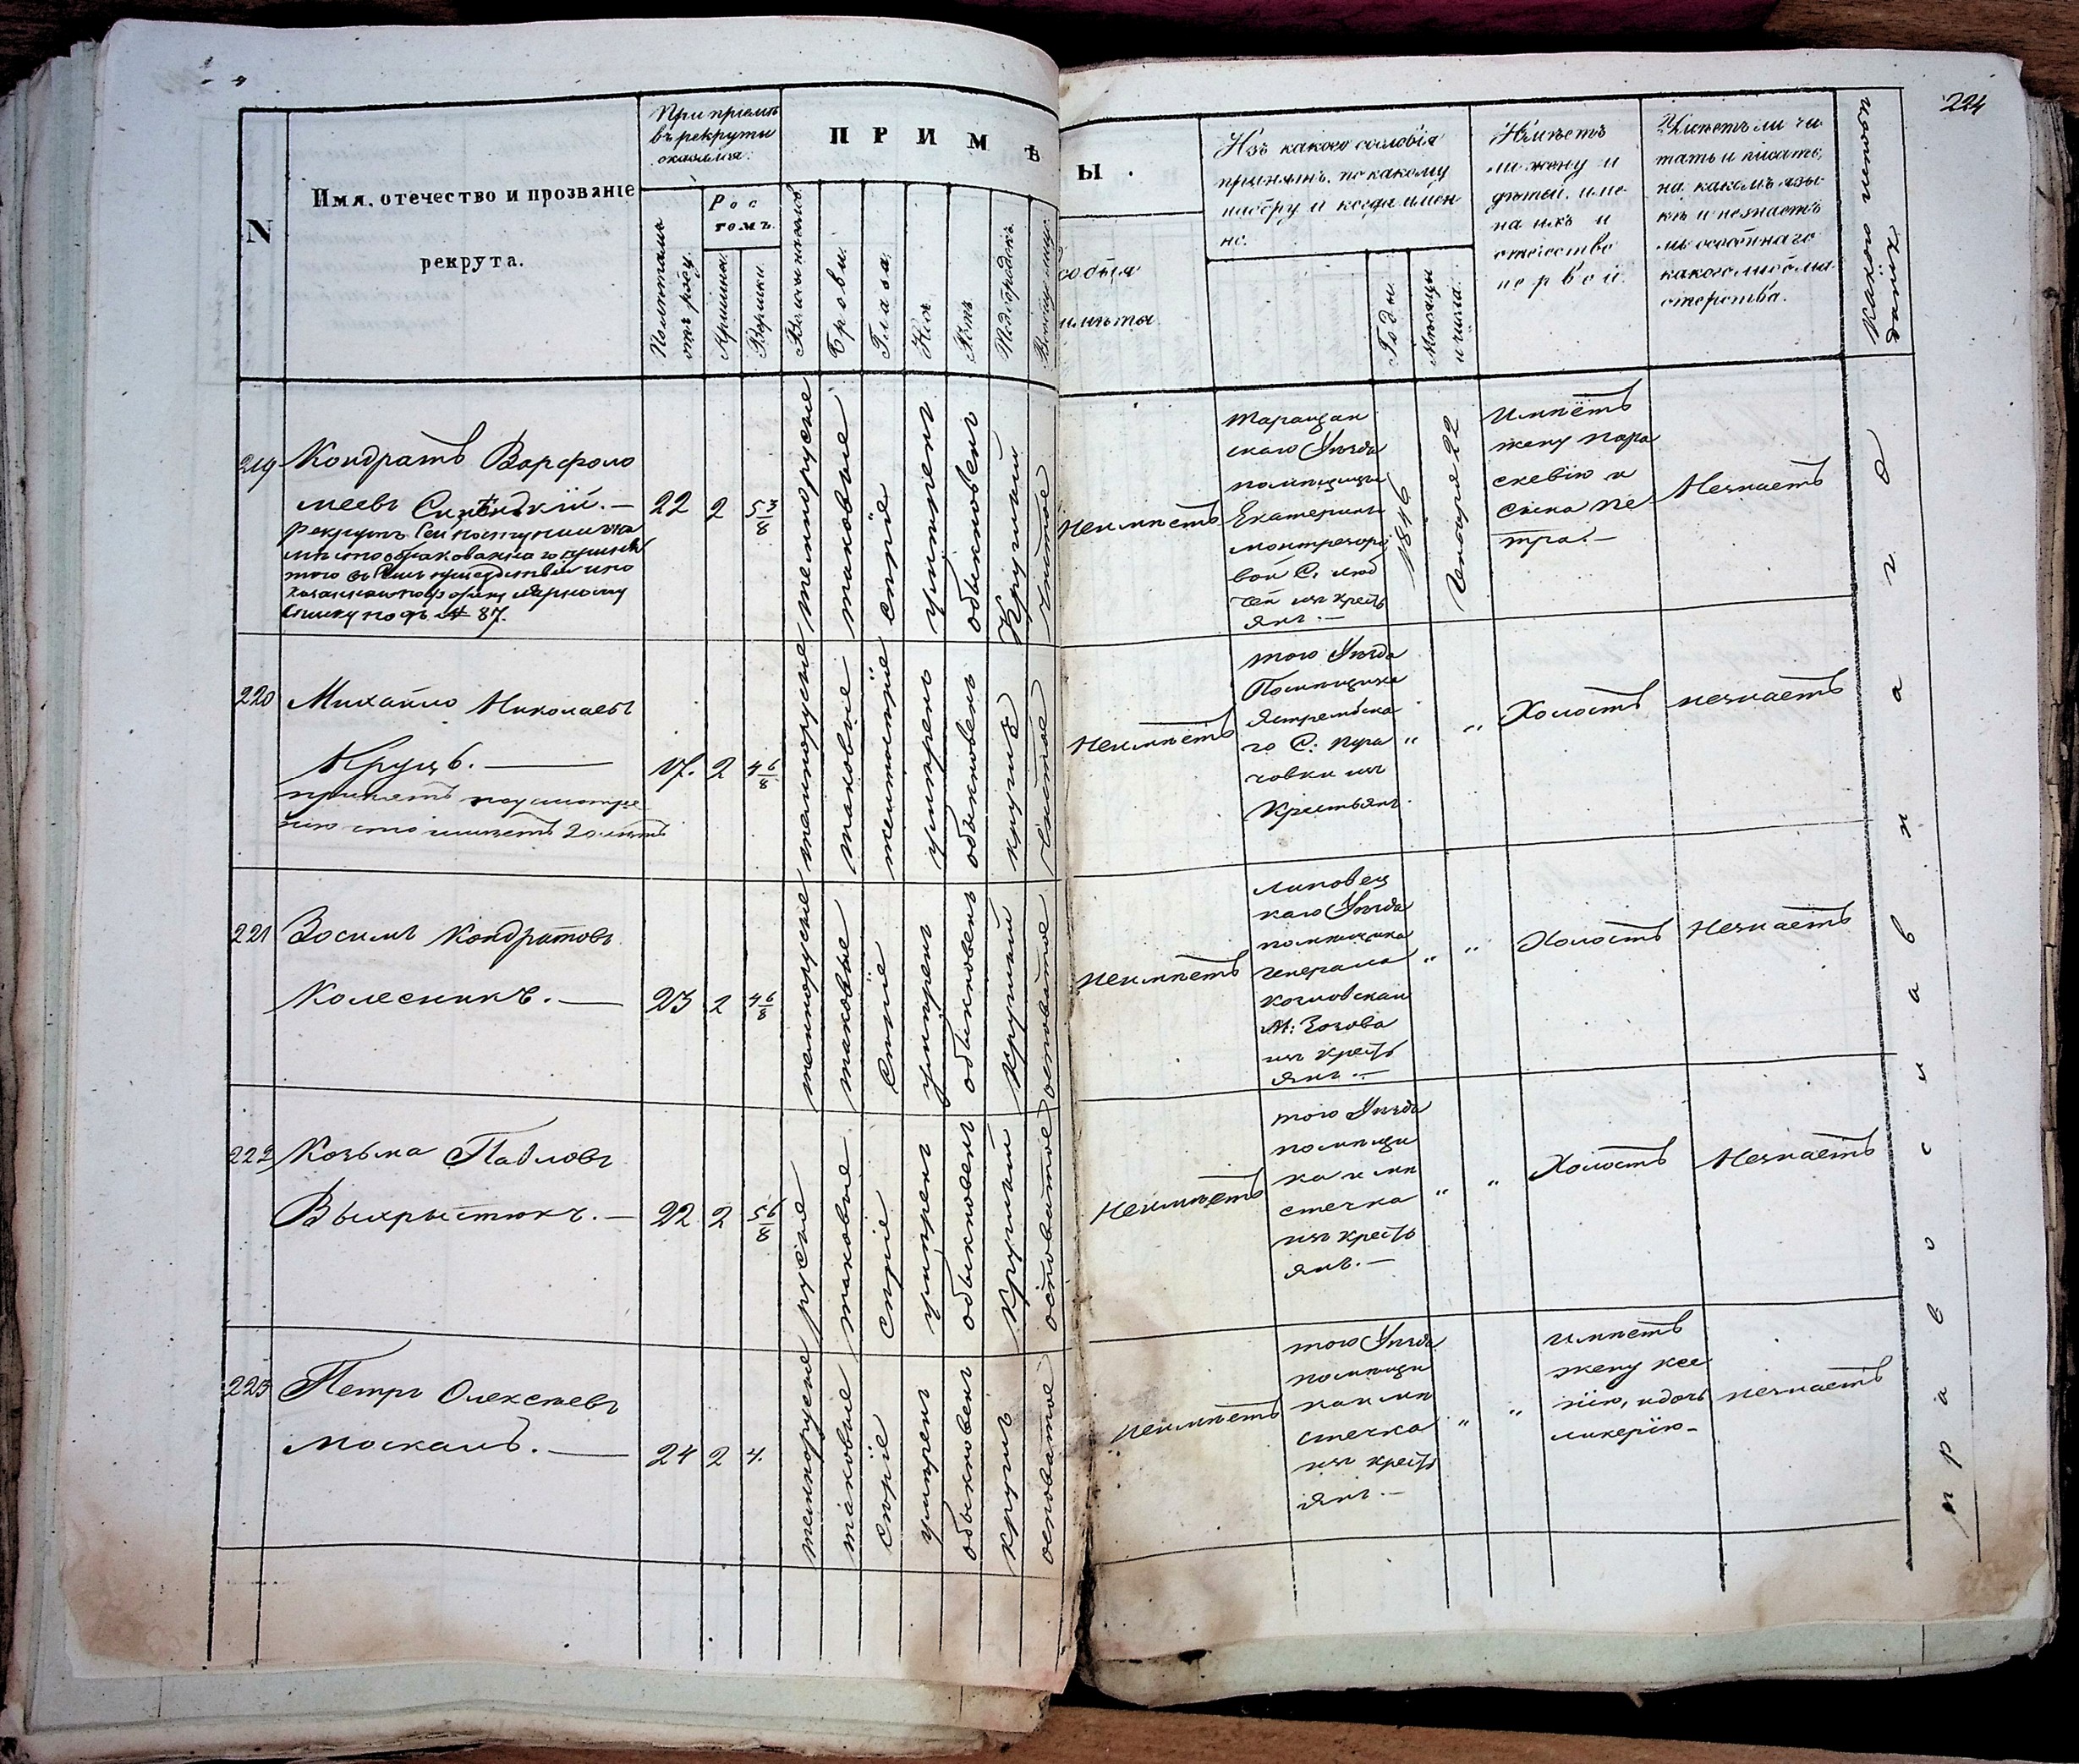 224
N
Имя, отечество и прозваніе
рекрута.
При пріемѣ
въ рекруты
оказался:
Полѣтамъ
отъ роду.
Рос
томъ.
Аршины.
Вершки.
ПРИМѢ
Брови.
Глаза.
Носъ
Ротъ
Подбородокъ.
Ы.
Особыя
примѣты
Изъ какого сословія
принятъ, по какому
набору и когда имен
но.
Годы.
Мѣсяцы
и числа.
Имѣетъ
ли жену и
дѣтей, име
на ихъ и
отчество
первой.
Умѣетъ ли чи
тать и писать,
на какомъ язы
кѣ и незнаетъ
ли особеннаго
какого либо ма
стерства.
Какого испов
даніх
219
Кондратъ Варфоло
меевъ
Рекрутъ Сей поступилъ на
мѣсто обракованнаго
списку подъ № 87.
22
2
5 3/8
темнорусые
таковые
сѣріе
умѣренъ
обыкновенъ
Круглый
чистое
Неимѣетъ
Таращан
скаго Уѣзда
помѣщицы
Екатерины
из кресть
янъ. —
1846
Генваря 22
Имѣетъ
жену Пара
скевію и
Сына Пе
тра. —
Незнаетъ
220
Михайло Николаевъ
Круць. —
принятъ по усмотре
нію что имѣетъ 20 лѣтъ
17.
2
4 6/8
темнорусые
таковые
желтосѣріе
умѣренъ
обыкновенъ
круглъ
Чистое
Неимѣетъ
того Уѣзда
Помѣщика
Ястрембска
го С: Пуга
човки изъ
Крестьянъ.
"
"
Холостъ
незнаетъ
221
Зосимъ Кондратовъ
Колесникъ. —
23
2
4 6/8
темнорусые
таковые
Сѣріе
умѣренъ
обыкновенъ
Круглый
осповатое
Неимѣетъ
Липовец
каго Уѣзда
помѣщика
Генерала
М: Зозова
изъ кресть
янъ. —
"
"
Холостъ
Незнаетъ
222
Козьма Павловъ
Выхрыстюкъ. —
22
2
5 6/8
русые
таковые
сѣріе
умѣренъ
обыкновенъ
Круглый
осповатое
Неимѣетъ
того Уѣзда
помѣщи
ка и мѣ
стечка
изъ кресть
янъ. —
"
"
Холостъ
Незнаетъ
223
Петръ Олексѣевъ
Москаль. —
24
2
4.
темнорусые
таковые
сѣріе
умѣренъ
обыкновенъ
круглъ
осповатое
Неимѣетъ
того Уѣзда
помѣщи
ка и мѣ
стечка
изъ кресть
янъ. —
"
"
Имѣетъ
жену Ксе
нію, и дочь
Ликерію —
незнаетъ
православнаго